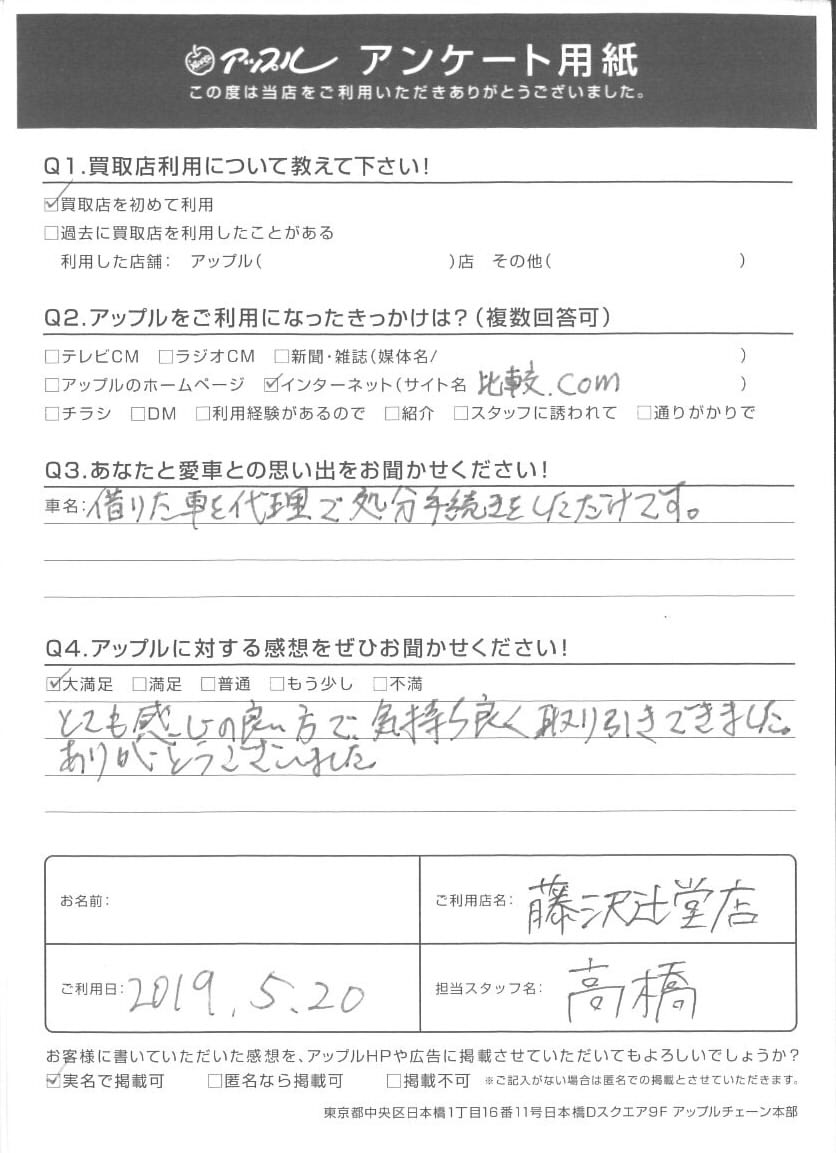 アップル アンケート用紙
この度は当店をご利用いただきありがとうございました。
Q1.買取店利用について教えて下さい!
☑買取店を初めて利用
□過去に買取店を利用したことがある
利用した店舗: アップル( )店 その他( )
Q2.アップルをご利用になったきっかけは?(複数回答可)
□テレビCM □ラジオCM □新聞・雑誌(媒体名/ )
□アップルのホームページ ☑インターネット(サイト名 比較.com )
□チラシ □DM □利用経験があるので □紹介 □スタッフに誘われて □通りがかりで
Q3.あなたと愛車との思い出をお聞かせください!
車名: 借りた車を代理で処分手続きをしただけです。
Q4.アップルに対する感想をぜひお聞かせください!
☑大満足 □満足 □普通 □もう少し □不満
とても感じの良い方で、気持ち良く取り引きできました。
ありがとうございました。
お名前:
ご利用店名: 藤沢辻堂店
ご利用日: 2019.5.20
担当スタッフ名: 高橋
お客様に書いていただいた感想を、アップルHPや広告に掲載させていただいてもよろしいでしょうか?
☑実名で掲載可 □匿名なら掲載可 □掲載不可 ※ご記入がない場合は匿名での掲載とさせていただきます。
東京都中央区日本橋1丁目16番11号日本橋Dスクエア9F アップルチェーン本部